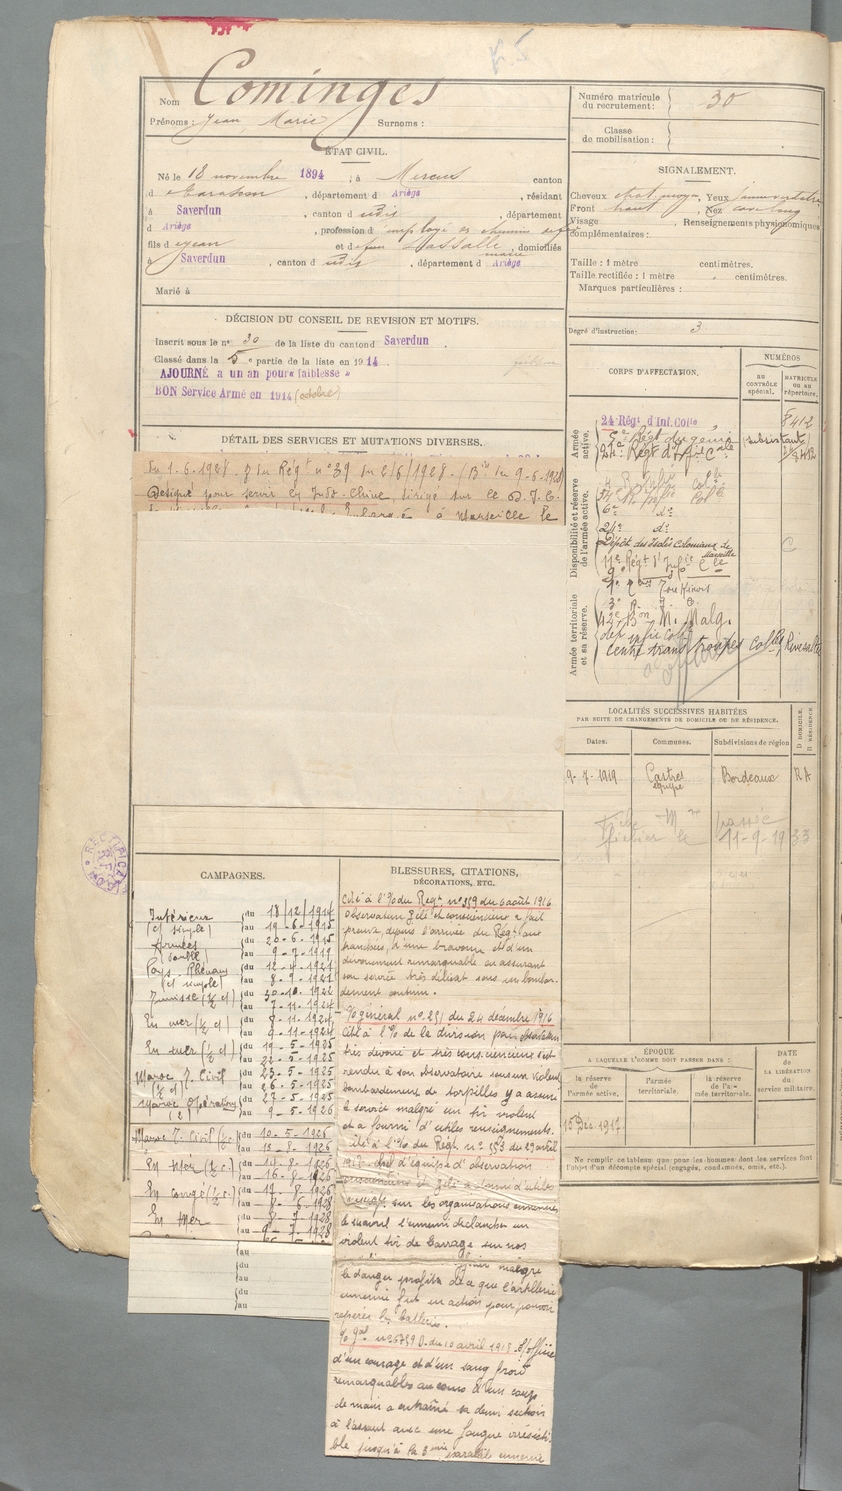 Nom Cominges
Prénoms : Jean Marie Surnoms :
ÉTAT CIVIL.
Né le 18 novembre 1894, à Mercus canton
d Tarascon, département d Ariège, résidant
à Saverdun, canton d udis, département
d Ariège, profession d employé de chemin de fer
fils d Jean et d feu Lassalle marie, domiciliés
à Saverdun, canton d udis, département d Ariège
Marié à
DÉCISION DU CONSEIL DE REVISION ET MOTIFS.
Inscrit sous le n° 30 de la liste du canton d Saverdun
Classé dans la 5e partie de la liste en 1914
AJOURNÉ a un an pour « faiblesse »
BON Service Armé en 1914 (octobre)
DÉTAIL DES SERVICES ET MUTATIONS DIVERSES.
du 1-6-1928. du Régt n° 39 du 2/6/1928. (Bin du 9-6-1928)
Désigné pour servir en Indo-Chine, dirigé sur le D.I.C.
à Marseille le
Numéro matricule du recrutement : 30
Classe de mobilisation :
SIGNALEMENT.
Cheveux chat. moyen, Yeux
Front haut, Nez cave long
Visage Renseignements physionomiques
complémentaires :
Taille : 1 mètre centimètres.
Taille rectifiée : 1 mètre centimètres.
Marques particulières :
Degré d'instruction : 3
CORPS D'AFFECTATION.
NUMÉROS
AU CONTRÔLE spécial.
MATRICULE OU AU répertoire.
Armée active.
24 Régt d'Inf. Colle 8412
5e Régt du génie (subsistant)
24e Régt d'Infie Cale
Disponibilité et réserve de l'armée active.
Régt Infie Colle
6e do
24e do
Dépôt des Isolés Coloniaux de Marseille
11e Régt d'Infie Cle
9e
Armée territoriale et sa réserve.
4e Tonkinois
3e R. I. C.
42e Bon M. Malg.
dép infie coll
Centre trans troupes colles Rivesaltes
LOCALITÉS SUCCESSIVES HABITÉES
PAR SUITE DE CHANGEMENTS DE DOMICILE OU DE RÉSIDENCE.
Dates. Communes. Subdivisions de région D DOMICILE. R RÉSIDENCE
9-7-1919 Castres Bordeaux RA
passée
fichier le 11-9-19 33
ÉPOQUE
A LAQUELLE L'HOMME DOIT PASSER DANS :
DATE DE LA LIBÉRATION du service militaire.
la réserve de l'armée active.
l'armée territoriale.
la réserve de l'armée territoriale.
15 Déc. 1917
Ne remplir ce tableau que pour les hommes dont les services font l'objet d'un décompte spécial (engagés, condamnés, omis, etc.)
CAMPAGNES.
Intérieur du 18/12/1914
(C/ simple) au 19-6-1915
Armées du 20-6-1915
(double) au 9-7-1919
Pays Rhénans du 12-4-1921
(C/ simple) au 8-9-1921
Tunisie (½ c/) du 30-10-1922
au 7-11-1924
En mer (½ c/) du 8-11-1924
au 9-11-1924
En mer (½ c/) du 19-5-1925
au 22-5-1925
Maroc T. Civil du 23-5-1925
(½ c/) au 26-5-1925
Maroc Opérations du 27-5-1925
au 9-5-1926
Maroc T. Civil (½ c.) du 10-5-1926
au 13-8-1926
En Mer (½ c.) du 14-8-1926
au 16-8-1926
En congé (½ c.) du 17-8-1926
au 8-6-1928
En Mer du 8-7-1928
au 9-7-1928
au
du
au
du
au
BLESSURES, CITATIONS,
DÉCORATIONS, ETC.
Cité à l'% du Regt n° 219 du 6 août 1916
observateur zélé et consciencieux a fait
preuve, depuis l'arrivée du Régt aux
tranchées, d'une bravoure et d'un
dévouement remarquable en assurant
son service très délicat sous un bombar-
dement continu.
% général n° 231 du 24 décembre 1916
Cité à l'% de la division pour observateur
très dévoué et très consciencieux s'est
rendu à son observatoire sous un violent
bombardement de torpilles y a assuré
le service malgré un tir violent
et a fourni d'utiles renseignements.
Cité à l'% du Régt n° 353 du 27 avril
1917 chef d'équipe d'observation
consciencieux et zélé a fourni d'utiles
sur les organisations ennemies
l'ennemi déclancha un
violent tir de barrage sur nos
malgré
le danger profita de ce que l'artillerie
ennemie fut en action pour pouvoir
repérer les batteries.
% gal n° 6789 D. du 10 avril 1918. S/officier
d'un courage et d'un sang froid
remarquables au cours d'un coup
de main a entraîné sa demi section
à l'assaut avec une fougue irrésisti-
ble jusqu'à la 3ème parallèle ennemie